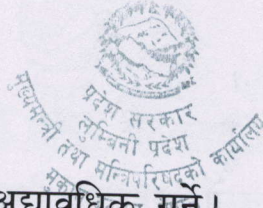 प्रदेश सरकार
लुम्बिनी प्रदेश
मुख्यमन्त्री तथा मन्त्रिपरिषदको कार्यालय
अद्यावधिक गर्ने।